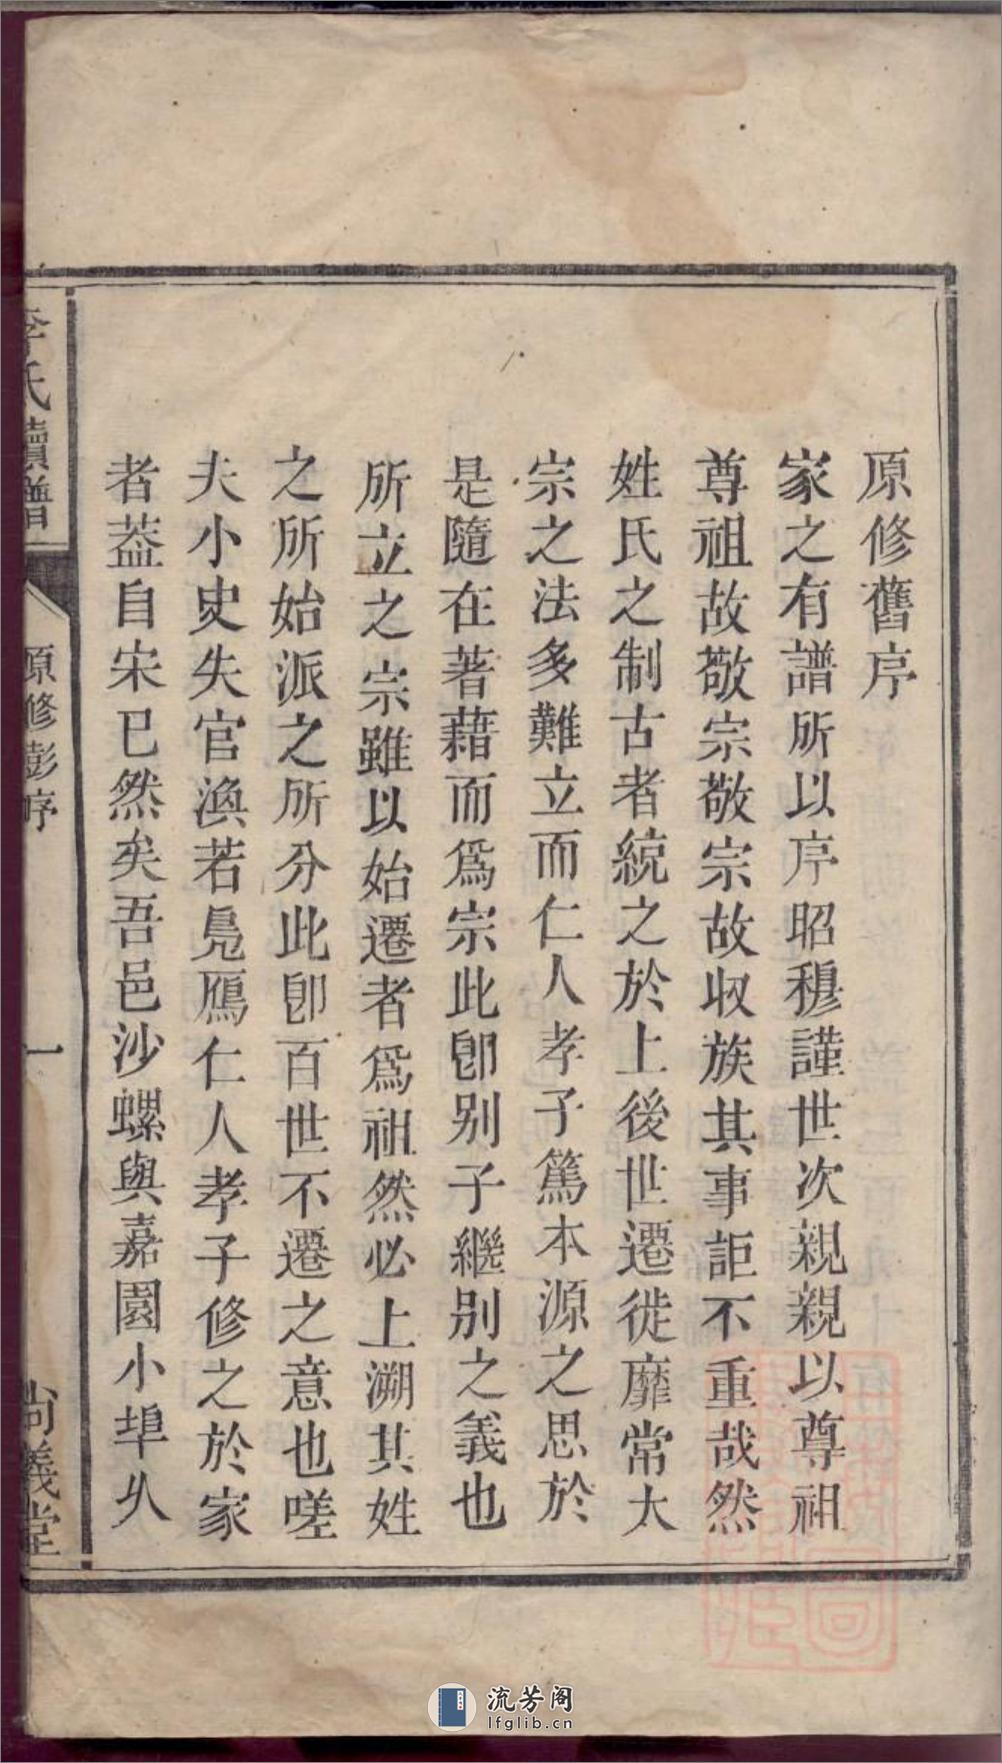 原修舊序
家之有譜所以序昭穆謹世次親親以尊祖
尊祖故敬宗敬宗故收族其事詎不重哉然
姓氏之制古者統之於上後世遷徙靡常大
宗之法多難立而仁人孝子篤本源之思於
是隨在著藉而爲宗此卽别子繼别之義也
所立之宗雖以始遷者爲祖然必上溯其姓
之所始派之所分此卽百世不遷之意也嗟
夫小史失官渙若鳧鴈仁人孝子修之於家
者葢自宋已然矣吾邑沙螺與嘉園小埠乆
李氏續譜
原修彭序
一
尚義堂
流芳阁
lfglib.cn